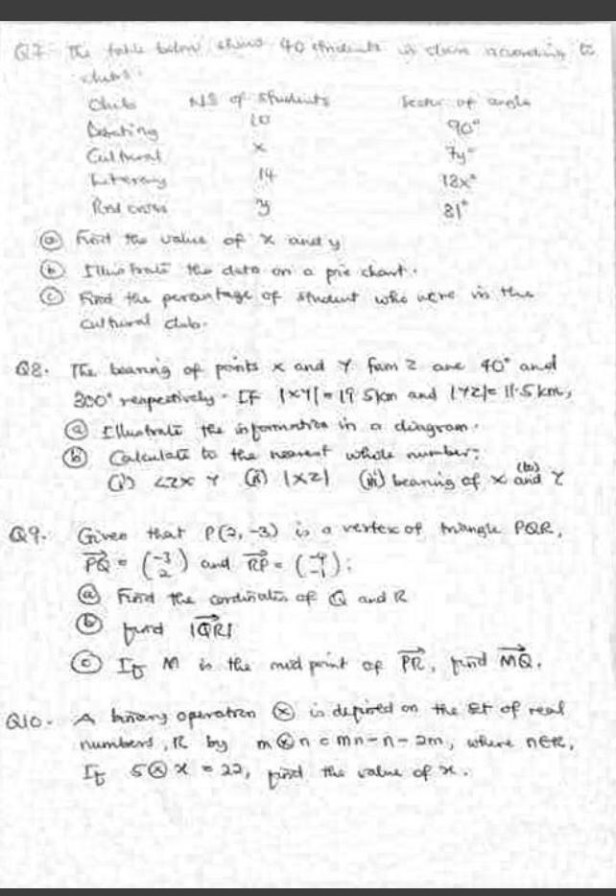 Q7. The table below shows 40 students in class according to
clubs.
Clubs NS of students Sector of angle
Debating 10 90°
Cultural x 7y°
Literary 14 18x°
Red cross y 81°
(a) Find the value of x and y
(b) Illustrate the data on a pie chart.
(c) Find the percentage of student who were in the
cultural club.
Q8. The bearing of points X and Y from Z are 40° and
300° respectively. If |XY| = 19.5km and |YZ| = 11.5km,
(a) Illustrate the information in a diagram.
(b) Calculate to the nearest whole number:
(i) <ZXY (ii) |XZ| (iii) bearing of X and Y
Q9. Given that P(2, -3) is a vertex of triangle PQR,
PQ = (-3 2) and RP = (-4 -1);
(a) Find the cordinates of Q and R
(b) find |QR|
(c) If M is the mid point of PR, find MQ.
Q10. A binary operation ⊗ is defined on the set of real
numbers, R by m⊗n = mn-n-2m, where n∈R,
If 5⊗x = 22, find the value of x.